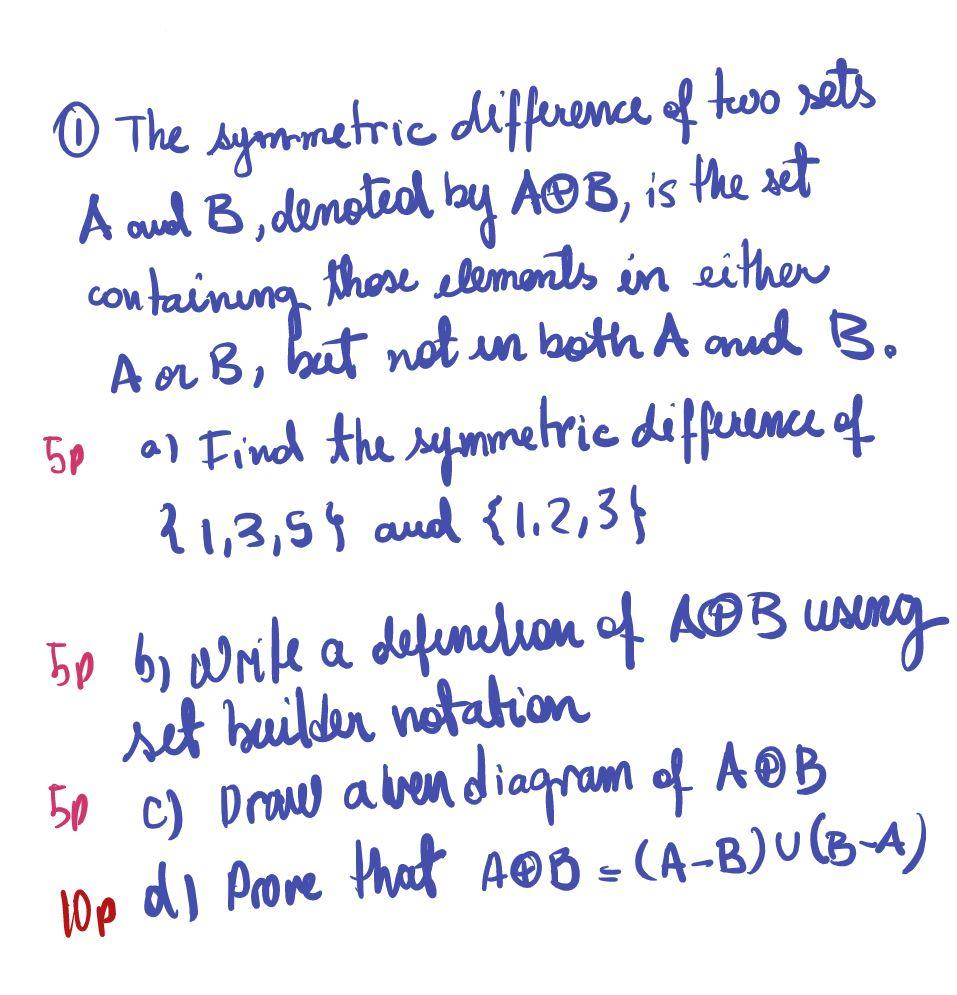 ① The symmetric difference of two sets
A and B, denoted by A⊕B, is the set
containing those elements in either
A or B, but not in both A and B.
5p a) Find the symmetric difference of
{1,3,5} and {1.2,3}
5p b) Write a definition of A⊕B using
set builder notation
5p c) Draw a Ven diagram of A⊕B
10p d) Prove that A⊕B = (A-B)∪(B-A)